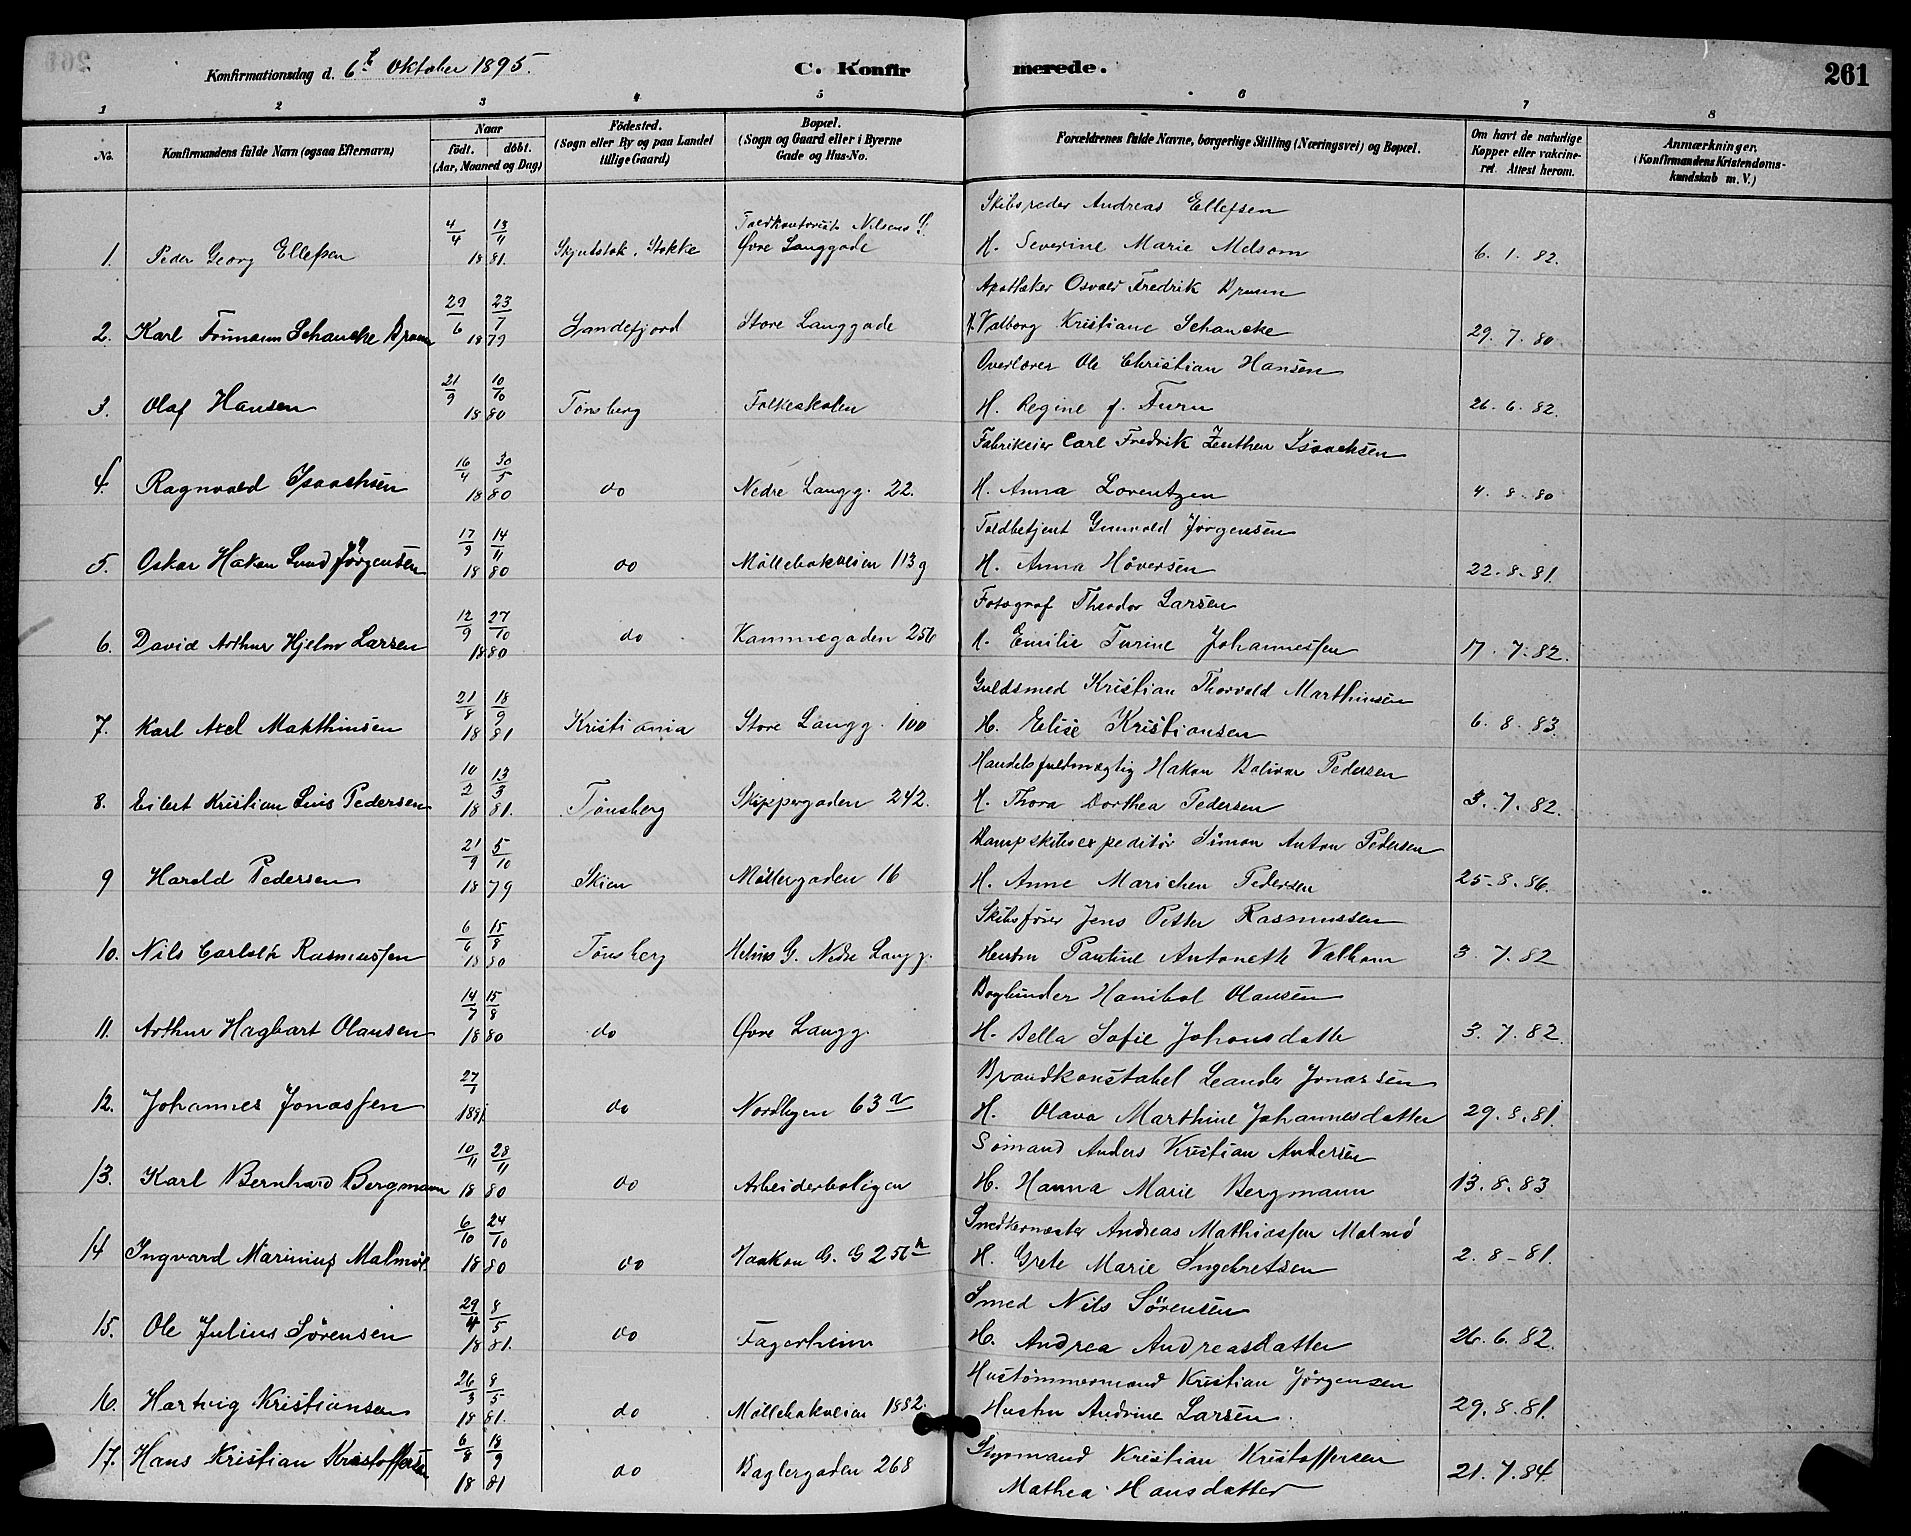 Konfirmationsdag d. 6te Oktober 1895.
C. Konfirmerede.
261
1 2 3 4 5 6 7 8
No. Konfirmandens fulde Navn (ogsaa Efternavn) Naar födt. döbt. (Aar, Maaned og Dag) Födested. (Sogn eller By og paa Landet tillige Gaard) Bopæl. (Sogn og Gaard eller i Byerne Gade og Hus-No. Forældrenes fulde Navne, borgerlige Stilling (Næringsvei) og Bopæl. Om havt de naturlige Kopper eller vakcineret. Attest herom. Anmærkninger. (Konfirmandens Kristendomskundskab m. V.)
Nilsens Skibsreder Andreas Ellefsen
1. Peder Georg Ellefsen 4/4 13/11 1881. Stokke Øvre Langgade H. Severine Marie Melsom 6. 1. 82.
Apotheker Osvald Fredrik Bruun
2. Karl Schancke Bruun 29/6 23/7 1879 Sandefjord Store Langgade H. Valborg Kristiane Schancke 29. 7. 80
Overlærer Ole Christian Hansen
3. Olaf Hansen 21/9 10/10 1880 Tønsberg Folkeskolen H. Regine f. Furu 26. 6. 82.
Fabrikeier Carl Fredrik Zeuthen Isaachsen
4. Ragnvald Isaachsen 16/4 30/5 1880 do Nedre Langg. 22. H. Anna Lorentzen 4. 8. 80
Toldbetjent Gunvald Jørgensen
5. Oskar Hakon Lund Jörgensen 17/9 14/11 1880 do Möllebakveien 113 g H. Anna Håversen 22. 8. 81.
Fotograf Theodor Larsen
6. David Arthur Hjelm Larsen 12/9 27/10 1880 do Kammegaden 256 H. Emilie Turine Johannessen 17. 7. 82.
Guldsmed Kristian Thorvald Marthinsen
7. Karl Axel Marthinsen 21/8 18/9 1881 Kristiania Store Langg. 100 H. Elise Kristiansen 6. 8. 83.
Handelsfuldmægtig Hakon Bolivar Pedersen
8. Eilert Kristian Pedersen 10/2 13/3 1881. Tønsberg Skippergaden 242. H. Thora Dorthea Pedersen 3. 7. 82.
Dampskibsexpeditör Simon Anton Pedersen
9 Harald Pedersen 21/9 5/10 1879 Skien Møllergaden 16 H. Anne Marichen Pedersen 25. 8. 86.
Skibsfører Jens Petter Rasmussen
10. Nils Rasmussen 6/6 15/8 1880 Tønsberg G. Nedre Langg. Hustru Pauline Antonette Valkam 3. 7. 82
Bogbinder Hanibal Olausen
11. Arthur Hagbart Olausen 14/7 15/8 1880 do Øvre Langg. H. Bella Sofie Johansdatter 3. 7. 82.
Brandkonstabel Leander Jonassen
12. Johannes Jonassen 27/1 1881. do Nordbyen 63 H. Olava Marthine Johannesdatter 29. 8. 81.
Sömand Anders Kristian Andersen
13. Karl Bernhard Bergmann 10/11 28/11 1880 do Arbeiderboligen H. Hanna Marie Bergmann 13. 8. 83
Snedkermester Andreas Mathiassen Malmö
14 Ingvard Marinius Malmö 6/10 24/10 1880 do Haakon G. G 256 h H. Grete Marie Ingebretsen 2. 8 - 81.
Smed Nils Sörensen
15. Ole Julius Sörensen 29/4 8/5 1881. do Fagerheim H. Andrea Andreasdatter 26. 6. 82.
Hustömmermand Kristian Jörgensen
16. Hartvig Kristiansen 26/3 8/5 1881. do Möllebakveien 1882. Hustru Andrine Larsen. 29. 8. 81.
17. Hans Kristian Kristoffersen 6/8 18/9 1881 do Baglergaden 268 Kristian Kristoffersen 21. 7. 84.
Mathea Hansdatter